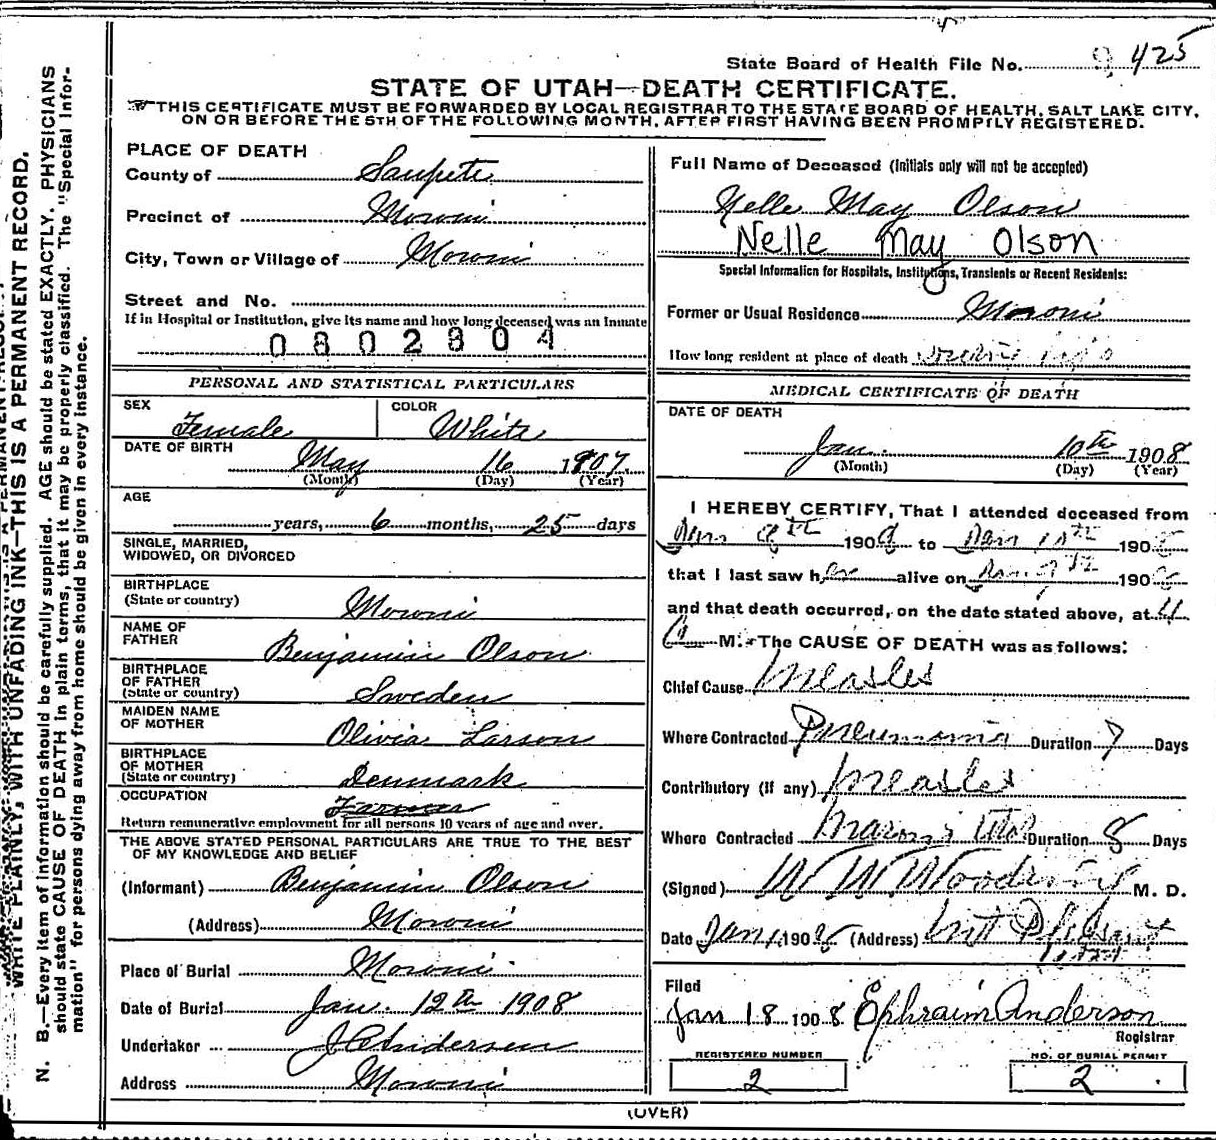 State Board of Health File No. 9 425
STATE OF UTAH—DEATH CERTIFICATE.
THIS CERTIFICATE MUST BE FORWARDED BY LOCAL REGISTRAR TO THE STATE BOARD OF HEALTH, SALT LAKE CITY,
ON OR BEFORE THE 5TH OF THE FOLLOWING MONTH, AFTER FIRST HAVING BEEN PROMPTLY REGISTERED.
PLACE OF DEATH
County of Sanpete
Precinct of Moroni
City, Town or Village of Moroni
Street and No.
If in Hospital or Institution, give its name and how long deceased was an Inmate
0802804
PERSONAL AND STATISTICAL PARTICULARS
SEX Female COLOR White
DATE OF BIRTH May 16 1907
(Month) (Day) (Year)
AGE
years, 6 months, 25 days
SINGLE, MARRIED,
WIDOWED, OR DIVORCED
BIRTHPLACE
(State or country) Moroni
NAME OF
FATHER Benjamin Olson
BIRTHPLACE
OF FATHER
(State or country) Sweden
MAIDEN NAME
OF MOTHER Olivia Larson
BIRTHPLACE
OF MOTHER
(State or country) Denmark
OCCUPATION Farmer
Return remunerative employment for all persons 10 years of age and over.
THE ABOVE STATED PERSONAL PARTICULARS ARE TRUE TO THE BEST
OF MY KNOWLEDGE AND BELIEF
(Informant) Benjamin Olson
(Address) Moroni
Place of Burial Moroni
Date of Burial Jan. 12th 1908
Undertaker J C Andersen
Address Moroni
Full Name of Deceased (Initials only will not be accepted)
Nelle May Olson
Nelle May Olson
Special Information for Hospitals, Institutions, Transients or Recent Residents:
Former or Usual Residence Moroni
How long resident at place of death
MEDICAL CERTIFICATE OF DEATH
DATE OF DEATH
Jan. 10th 1908
(Month) (Day) (Year)
I HEREBY CERTIFY, That I attended deceased from
190 to Jan 10th 190
that I last saw her alive on Jan 9th 190
and that death occurred, on the date stated above, at 4
A M. The CAUSE OF DEATH was as follows:
Chief Cause Measles
Where Contracted Pneumonia Duration 7 Days
Contributory (if any) Measles
Where Contracted Moroni Utah Duration 8 Days
(Signed) M. D.
Date Jan 1908 (Address) Mt Pleasant
Utah
Filed
Jan 18 1908 Ephraim Anderson
Registrar
REGISTERED NUMBER
2
NO. OF BURIAL PERMIT
2
(OVER)
WRITE PLAINLY, WITH UNFADING INK—THIS IS A PERMANENT RECORD.
N. B.—Every item of information should be carefully supplied. AGE should be stated EXACTLY. PHYSICIANS
should state CAUSE OF DEATH in plain terms, that it may be properly classified. The "Special Infor-
mation" for persons dying away from home should be given in every instance.